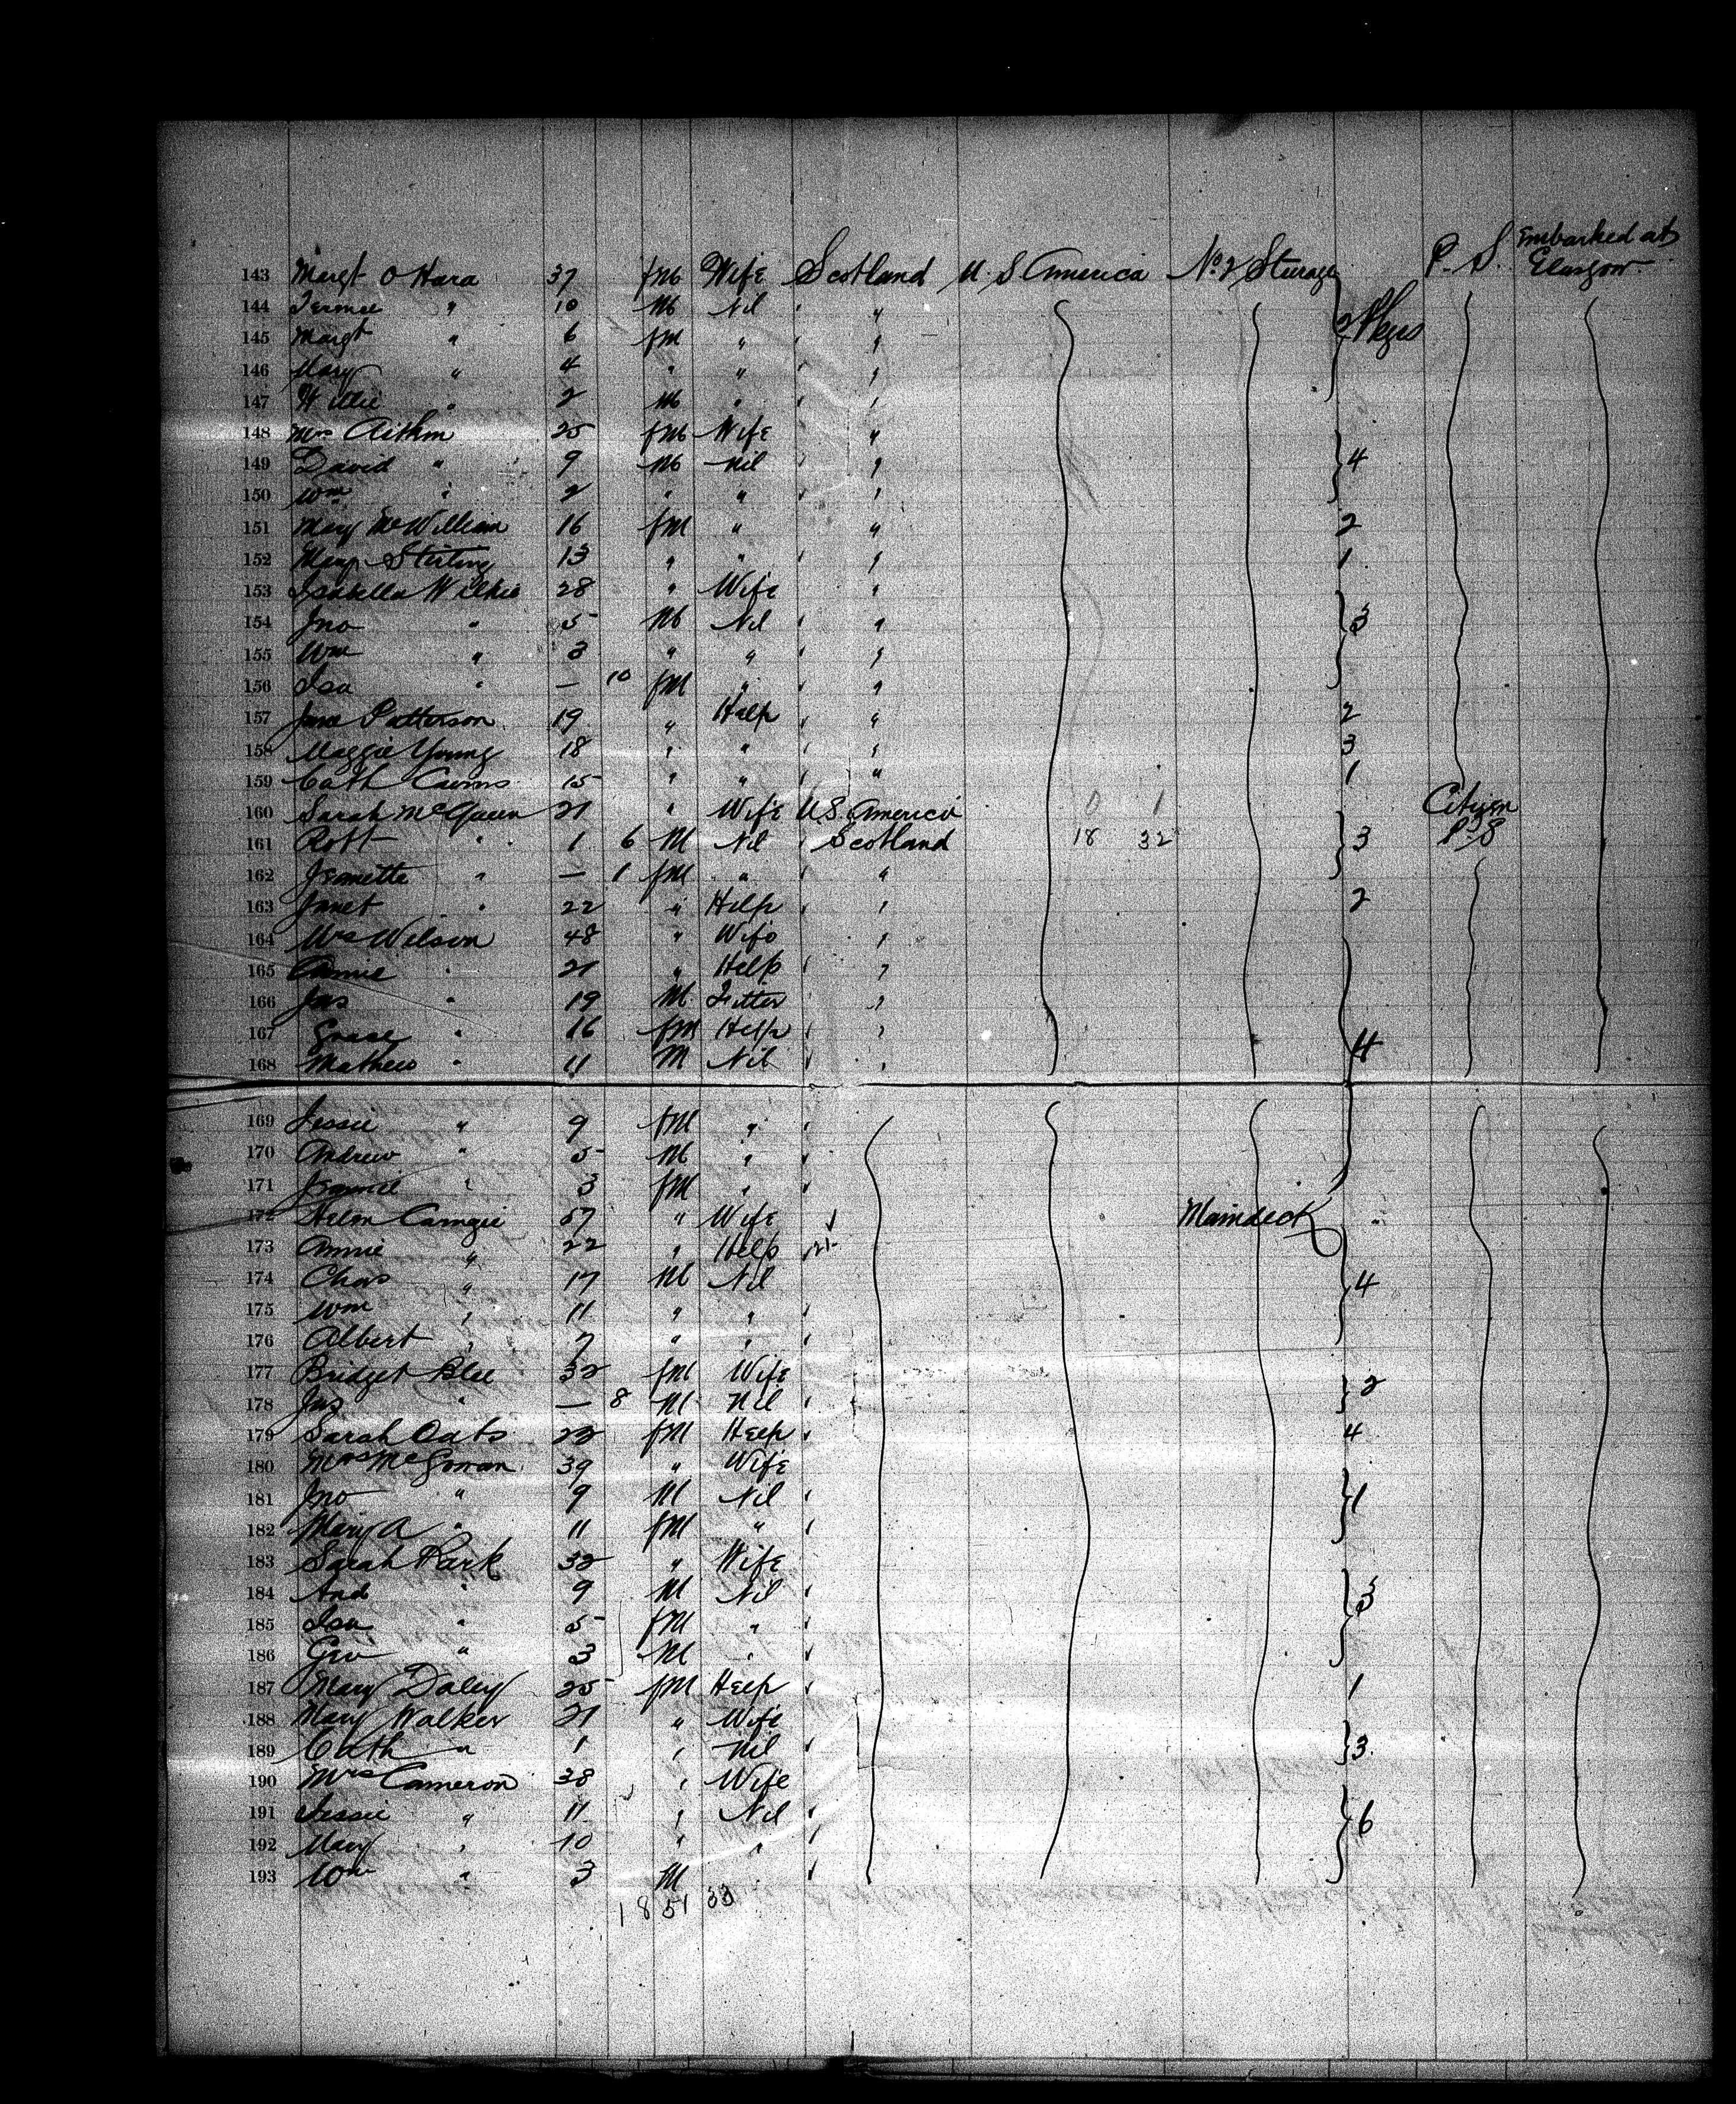 P. S. Embarked at
143 Margt O Hara 37 fm Wife Scotland U. S. America No. 2 Sturage Glasgow
144 " 10 M Nil "
145 Margt " 6 fm " " Pkgs
146 Mary " 4 " " "
147 " 2 M " "
148 Mrs Aitken 25 fm Wife "
149 David " 9 M Nil " 4
150 Wm " 2 " " "
151 Mary McWilliam 16 fm " " 2
152 Stirling 13 " " " 1
153 Isabella Wilkie 28 " Wife "
154 Jno " 5 M Nil " 3
155 Wm " 3 " " "
156 Isa " — 10 fM " "
157 Jane Patterson 19 " Help " 2
158 Maggie Young 18 " " " 3
159 Cath Cairns 15 " " " 1
160 Sarah McQueen 21 " Wife U.S. America 0 1 Citizen
161 Robt " 1 6 M Nil Scotland 18 32 3 P.S
162 Jeanette " — 1 fM " "
163 Janet " 22 " Help " 2
164 Mrs Wilson 48 " Wife "
165 Annie " 21 " Help "
166 Jas " 19 M Fitter "
167 Grace " 16 fM Help "
168 Mathew " 11 M Nil " 4
169 Jessie " 9 fM "
170 Andrew " 5 M "
171 Jeannie " 3 fM "
172 Helen Carngie 57 " Wife Maindeck "
173 Annie " 22 " Help
174 Chas " 17 M Nil 4
175 Wm " 11 " "
176 Albert " 7 " "
177 Bridget Blee 32 fM Wife
178 Jas " — 8 M Nil 2
179 Sarah Oats 23 fM Help 4
180 Mrs McGowan 39 " Wife
181 Jno " 9 M Nil 1
182 Mary A " 11 fM "
183 Sarah Park 32 " Wife
184 And " 9 M Nil 3
185 Isa " 5 fM "
186 Geo " 3 M "
187 Mary Daley 25 fM Help 1
188 Mary Walker 21 " Wife
189 Cath " 1 " Nil 3
190 Mrs Cameron 38 " Wife
191 Jessie " 11 " Nil 6
192 Mary " 10 " "
193 Wm " 3 M
1 8 51 33